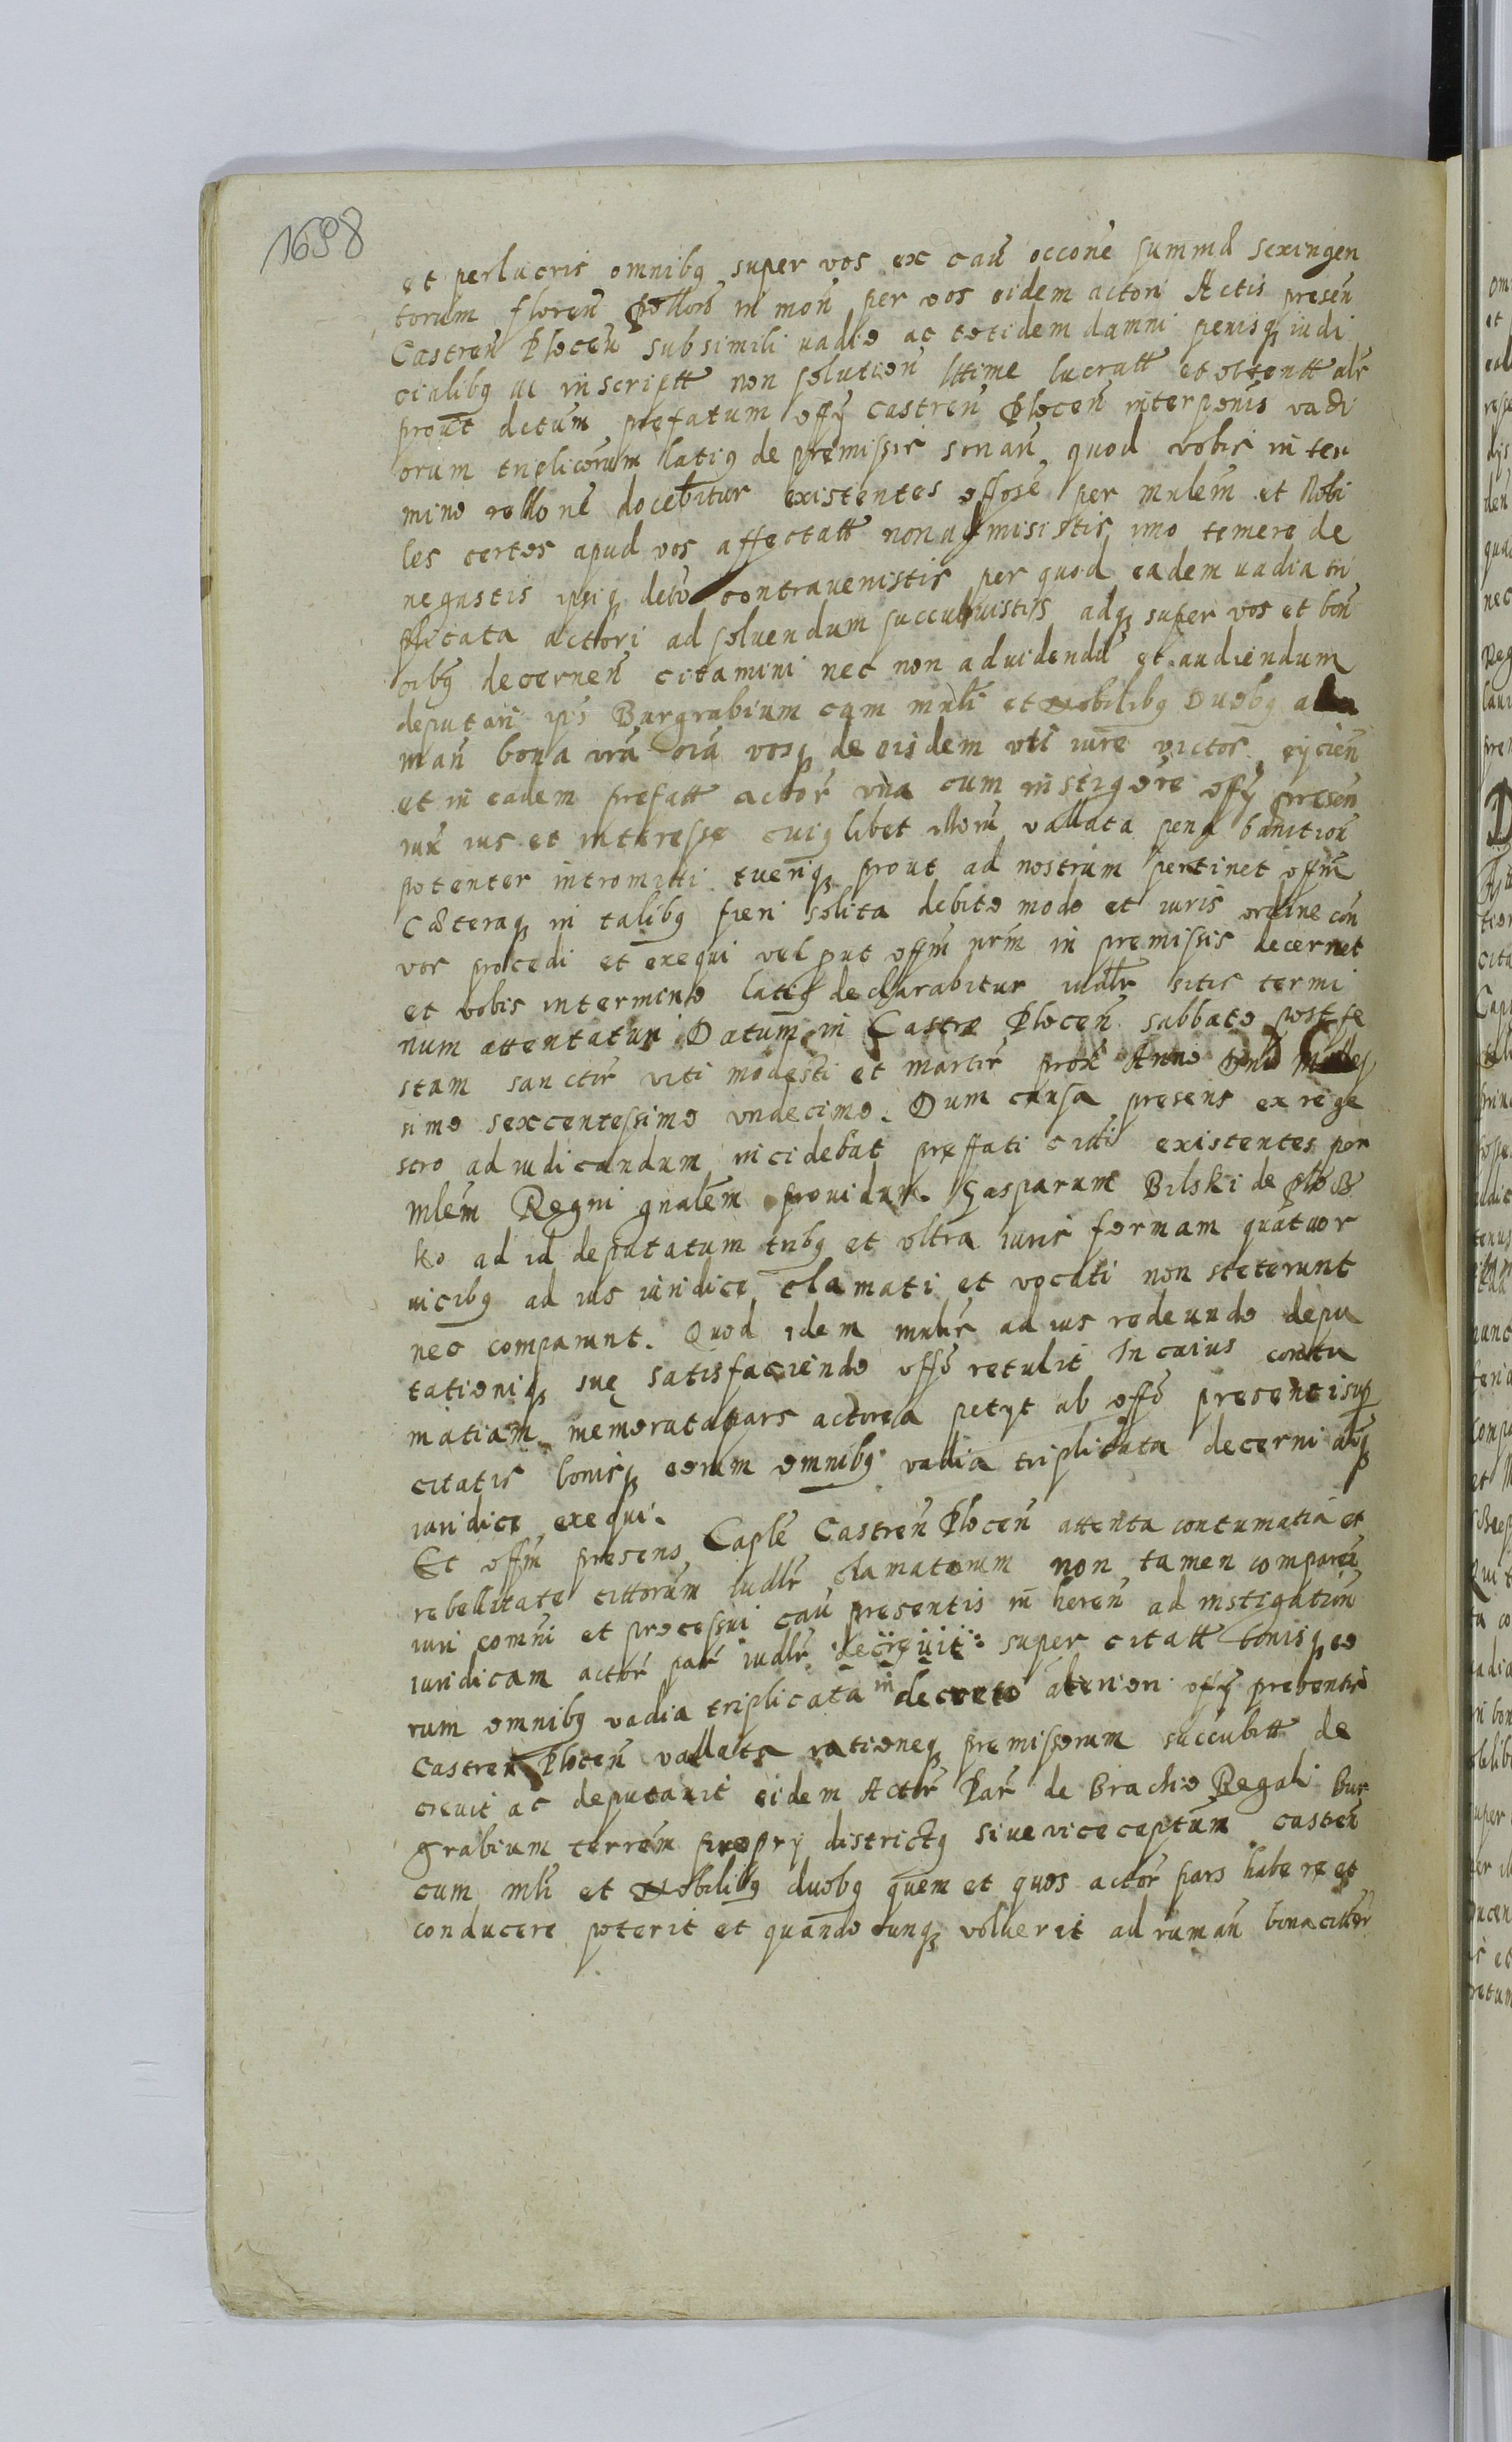 1698
et perlucris omnibq super vos ex cau occone summa sexingen
torum floren pollor in mon per vos eidem actori Actis presen
Castren Plocen sub simili vadio ac totidem damni penisq iudi
cialibq ut inscriptt non solution lttime lucratt et obtentt als
prout detum prefatum offy castren Plocen interpenis vadi
orum triplicorum latiq de premissis sonan quod vobis in ter
mino rellone docebitur existentes offose per mnlem et Nobi
les certos apud vos affectatt non admisistis imo temere de
negastis ipsiq deto contravenistis per quod eadem vadia tri
plicata actori ad soluendum succubuistis adq super vos et bon
oibq decernen citamini nec non ad uidendu et audiendum
deputari ips Burgrabium cum mnli et Nobilibq Duobq ad
man bona vra oia vosq de eisdem uti iure victos eycien
et in eadem prefatt actor una cum instigore offy presen
iux ius et interesse cuiq libet illorum vallata pena banition
potenter intromitti tueriq prout ad nostrum pertinet offm
Cæteraq in talibq fieri solita debito modo et iuris ordine con
vos procedi et exequi vel put offm nrm in premissis decernet
et vobis intermino latiq declarabitur iudlr sitis termi
num attentaturi Datum in Castro Plocen sabbato post fe
stum sanctor viti modesti et martir prox Anno Dni Milles
simo sexcentessimo undecimo. Dum causa presens ex rege
stro ad iudicandum incidebat preffati citti existentes per
mlem Regni gnalem providum Gasparum Bilski de Plo
ko ad id deputatum tribq et ultra iuris formam quatuor
vicibq ad ius iuridice clamati et vocati non steterunt
nec comparunt. Quod idem mnlis ad ius redeundo depu
tationiq suę satisfaciendo offo retulit In cuius contu
matiam memorata pars actorea petyt ab offo presenti sup
citatis bonisq eorum omnibq vadia triplicata decerni atq
iuridice exequi.
Et offm presens Caple Castren Plocen attenta contumatia et
rebellitate cittorum iudlr clamatorum non tamen comparen
iuri comni et processui cau presentis in heren ad instigatim
iuridicam actor par iudlr decrevit super citatt bonisq eo
rum omnibq vadia triplicata in decreto aterion offy presentis
Castren Plocen vallata rationeq premissorum succubitt de
crevit ac deputavit eidem Actor Par de Brachio Regali Bur
grabium terrem propry districtq sive vicecaptum castren
cum mli et Nobilibq duobq quem et quos actor pars habere et
conducere poterit et quando cunq voluerit ad ruman bona cittor